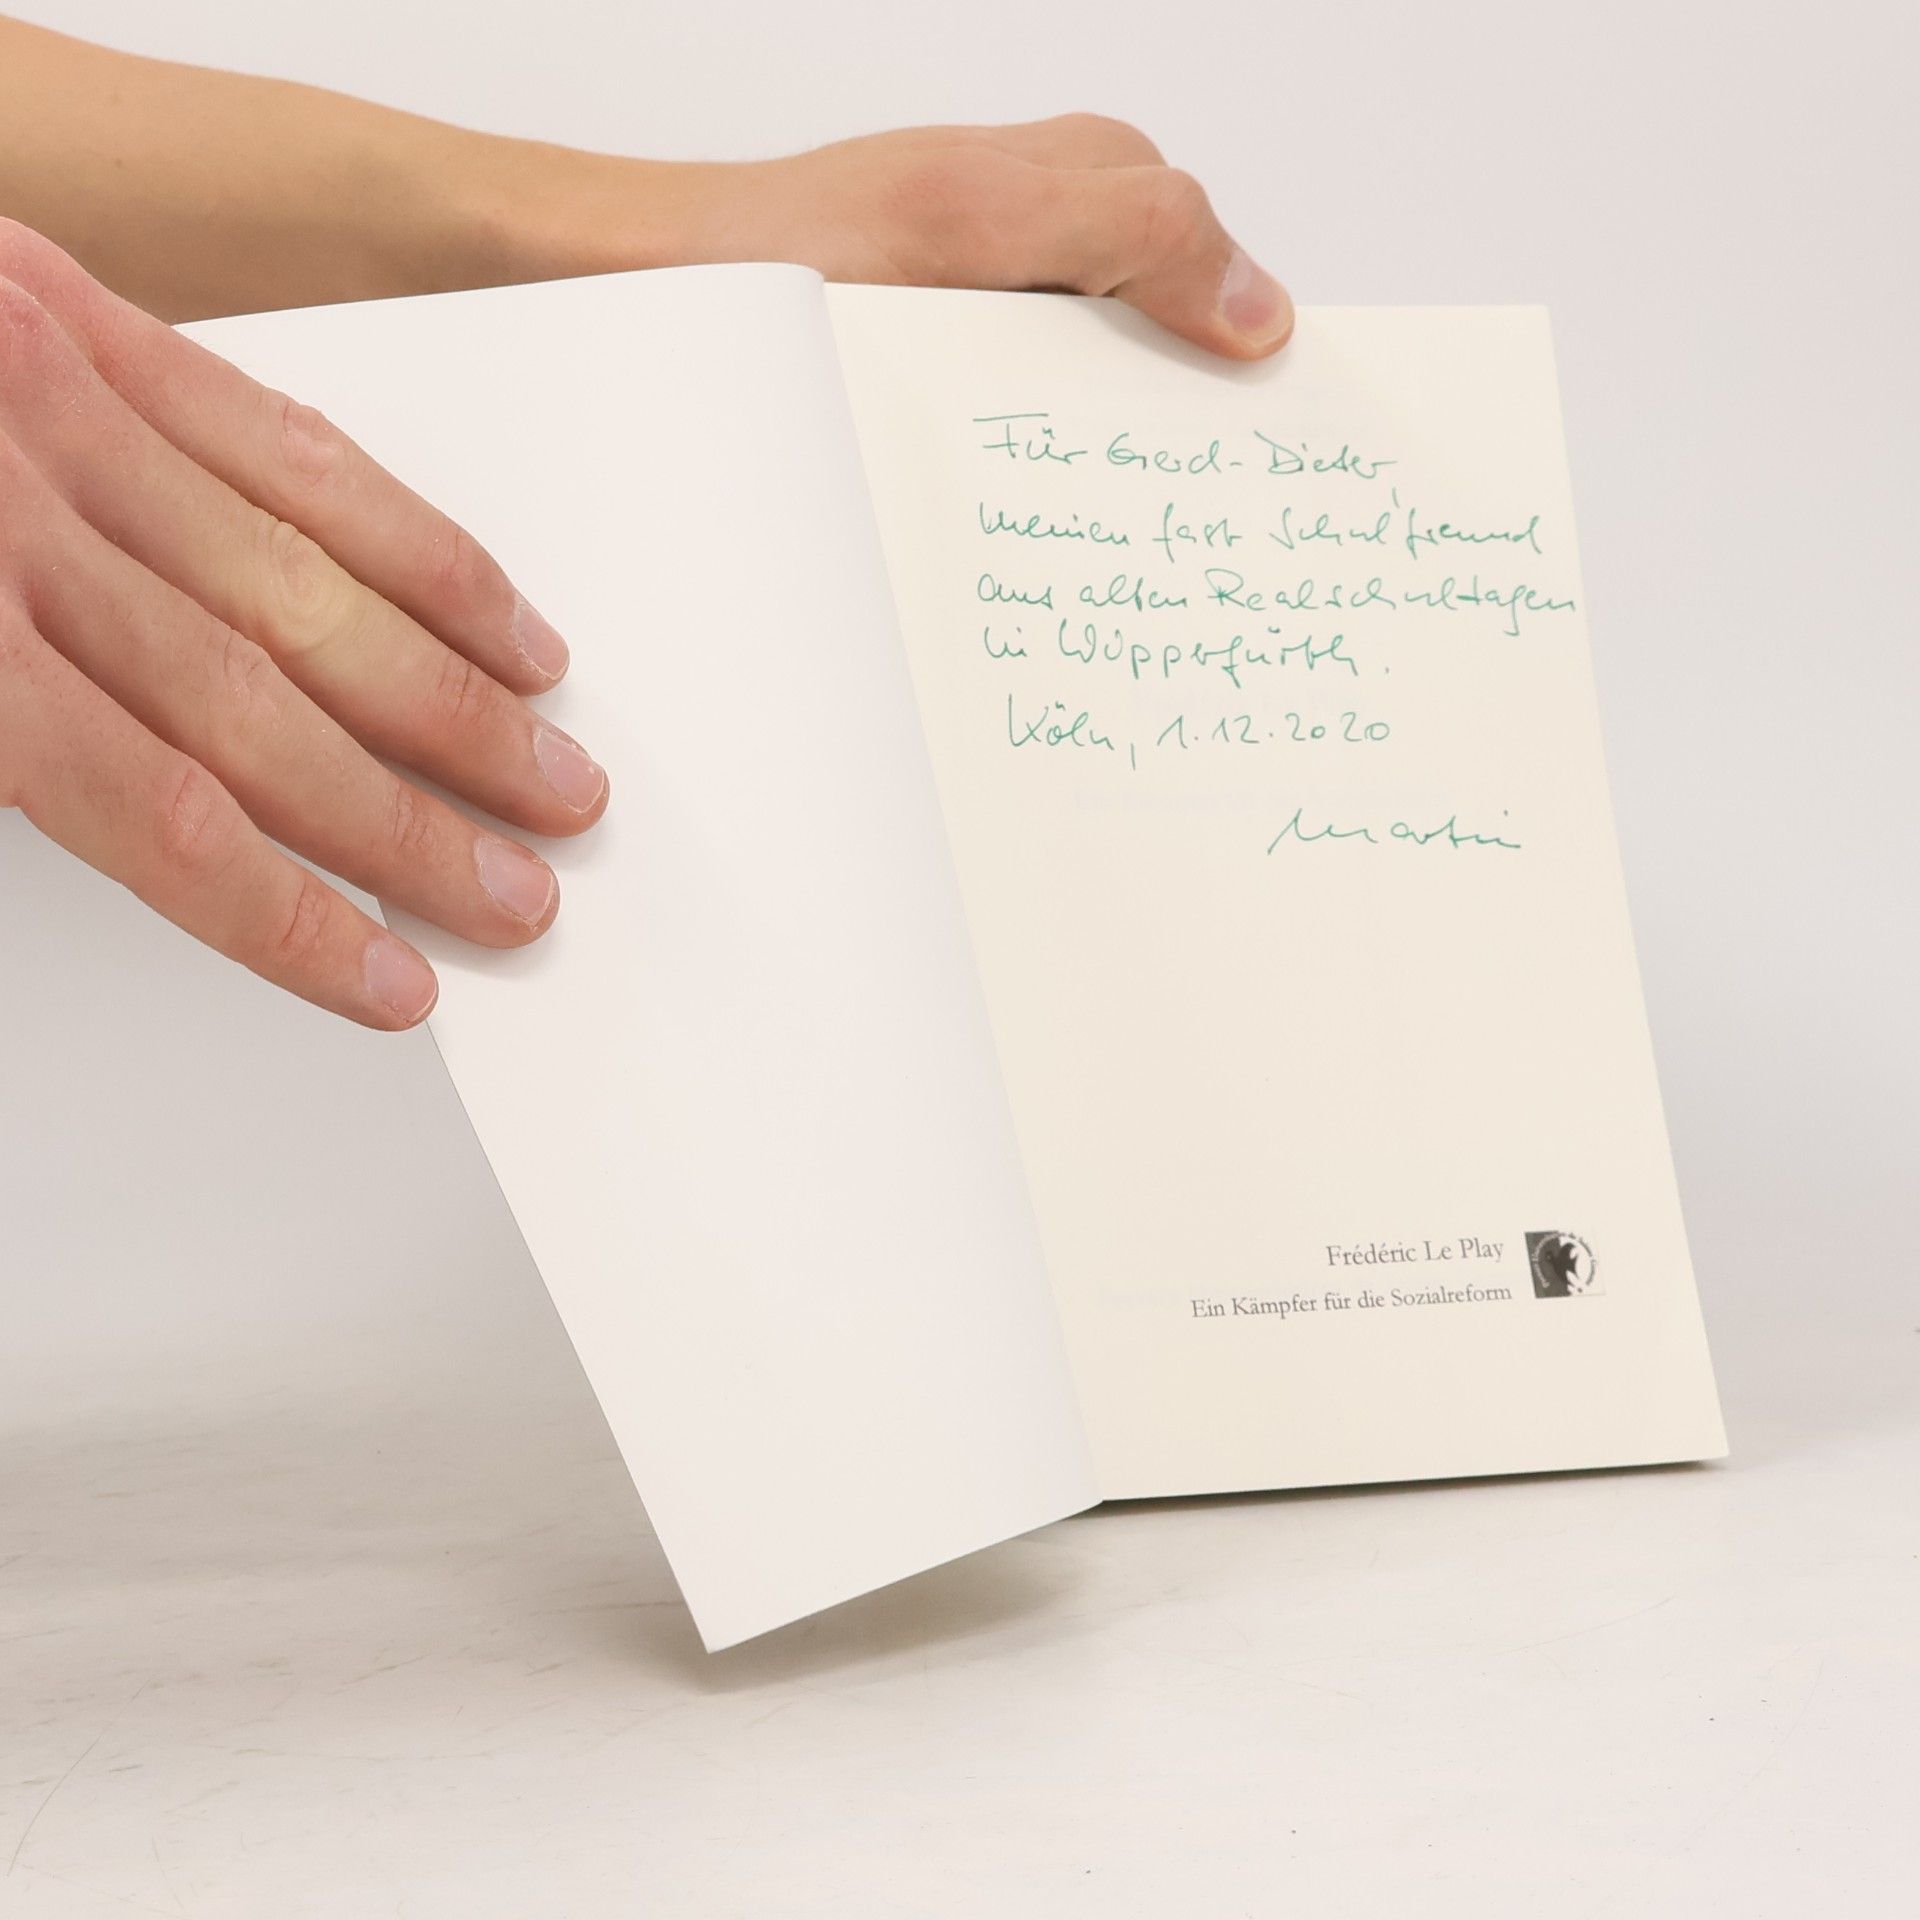 Für Gerd-Dieter,
meinen fast Schulfreund
aus alten Realschultagen
in Wipperfürth.
Köln, 1.12.2020
Martin
Frédéric Le Play
Ein Kämpfer für die Sozialreform